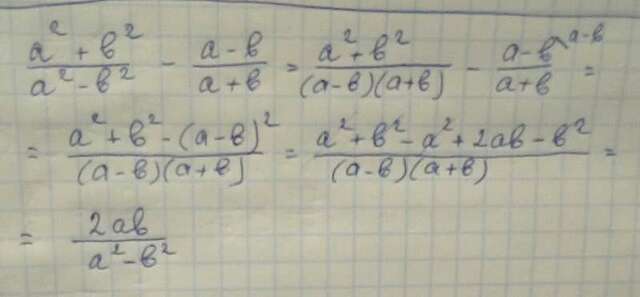 \frac{a^2+b^2}{a^2-b^2} - \frac{a-b}{a+b} = \frac{a^2+b^2}{(a-b)(a+b)} - \frac{a-b^{\backslash a-b}}{a+b} =
= \frac{a^2+b^2-(a-b)^2}{(a-b)(a+b)} = \frac{a^2+b^2-a^2+2ab-b^2}{(a-b)(a+b)} =
= \frac{2ab}{a^2-b^2}